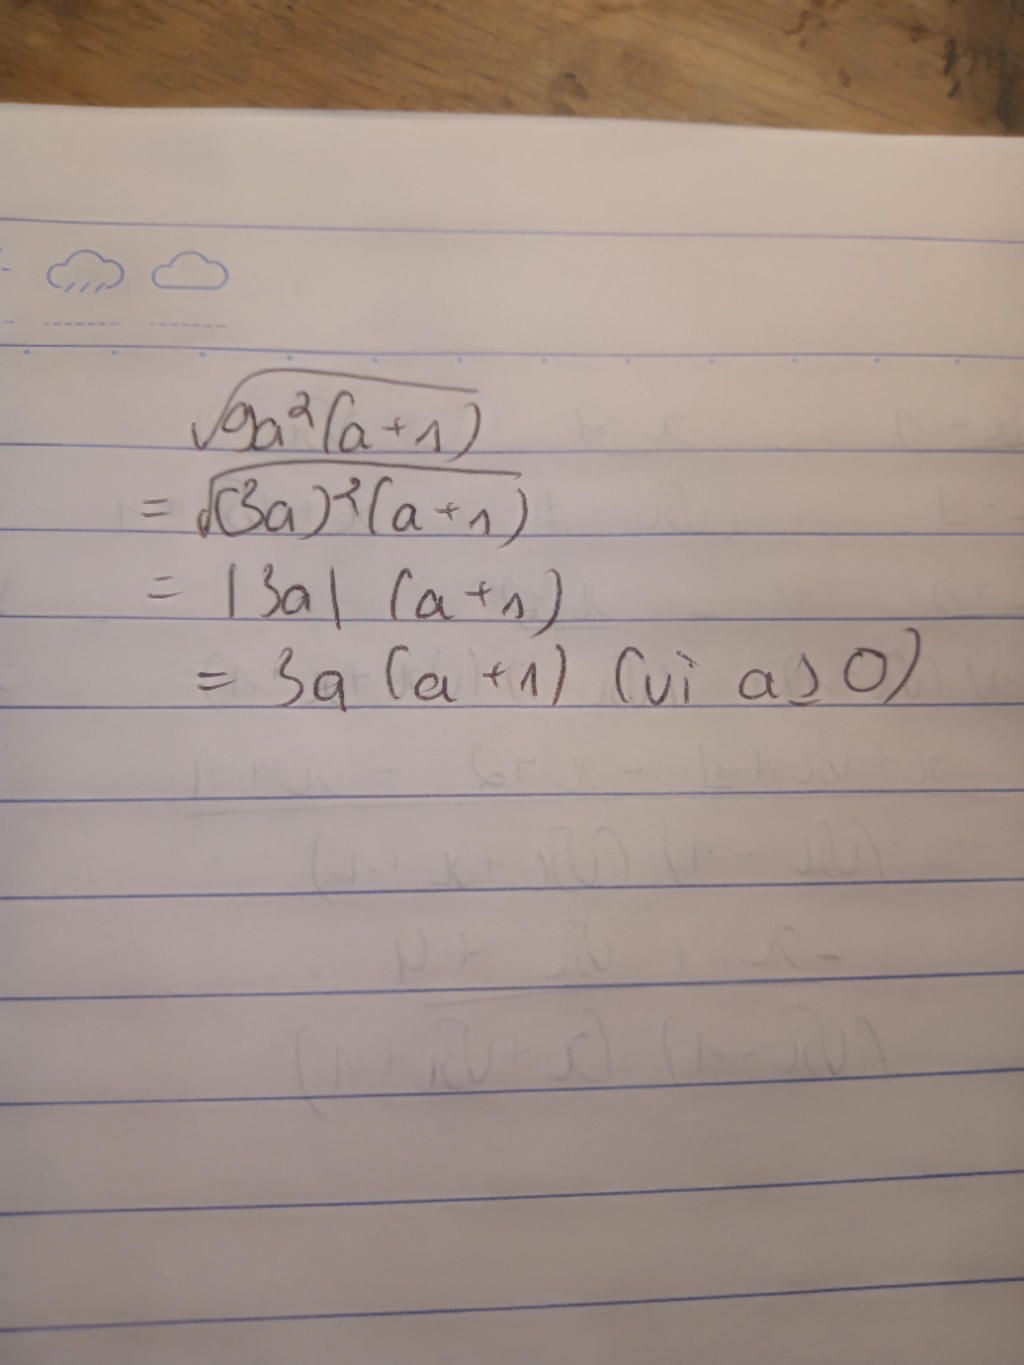 √9a²(a+1)
= √(3a)²(a+1)
= |3a| (a+1)
= 3a (a+1) (vì a ≥ 0)